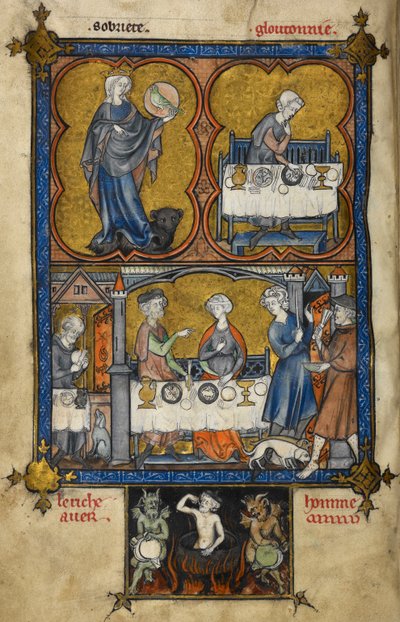 sobriete.
gloutonnie.
le riche
homme
auer